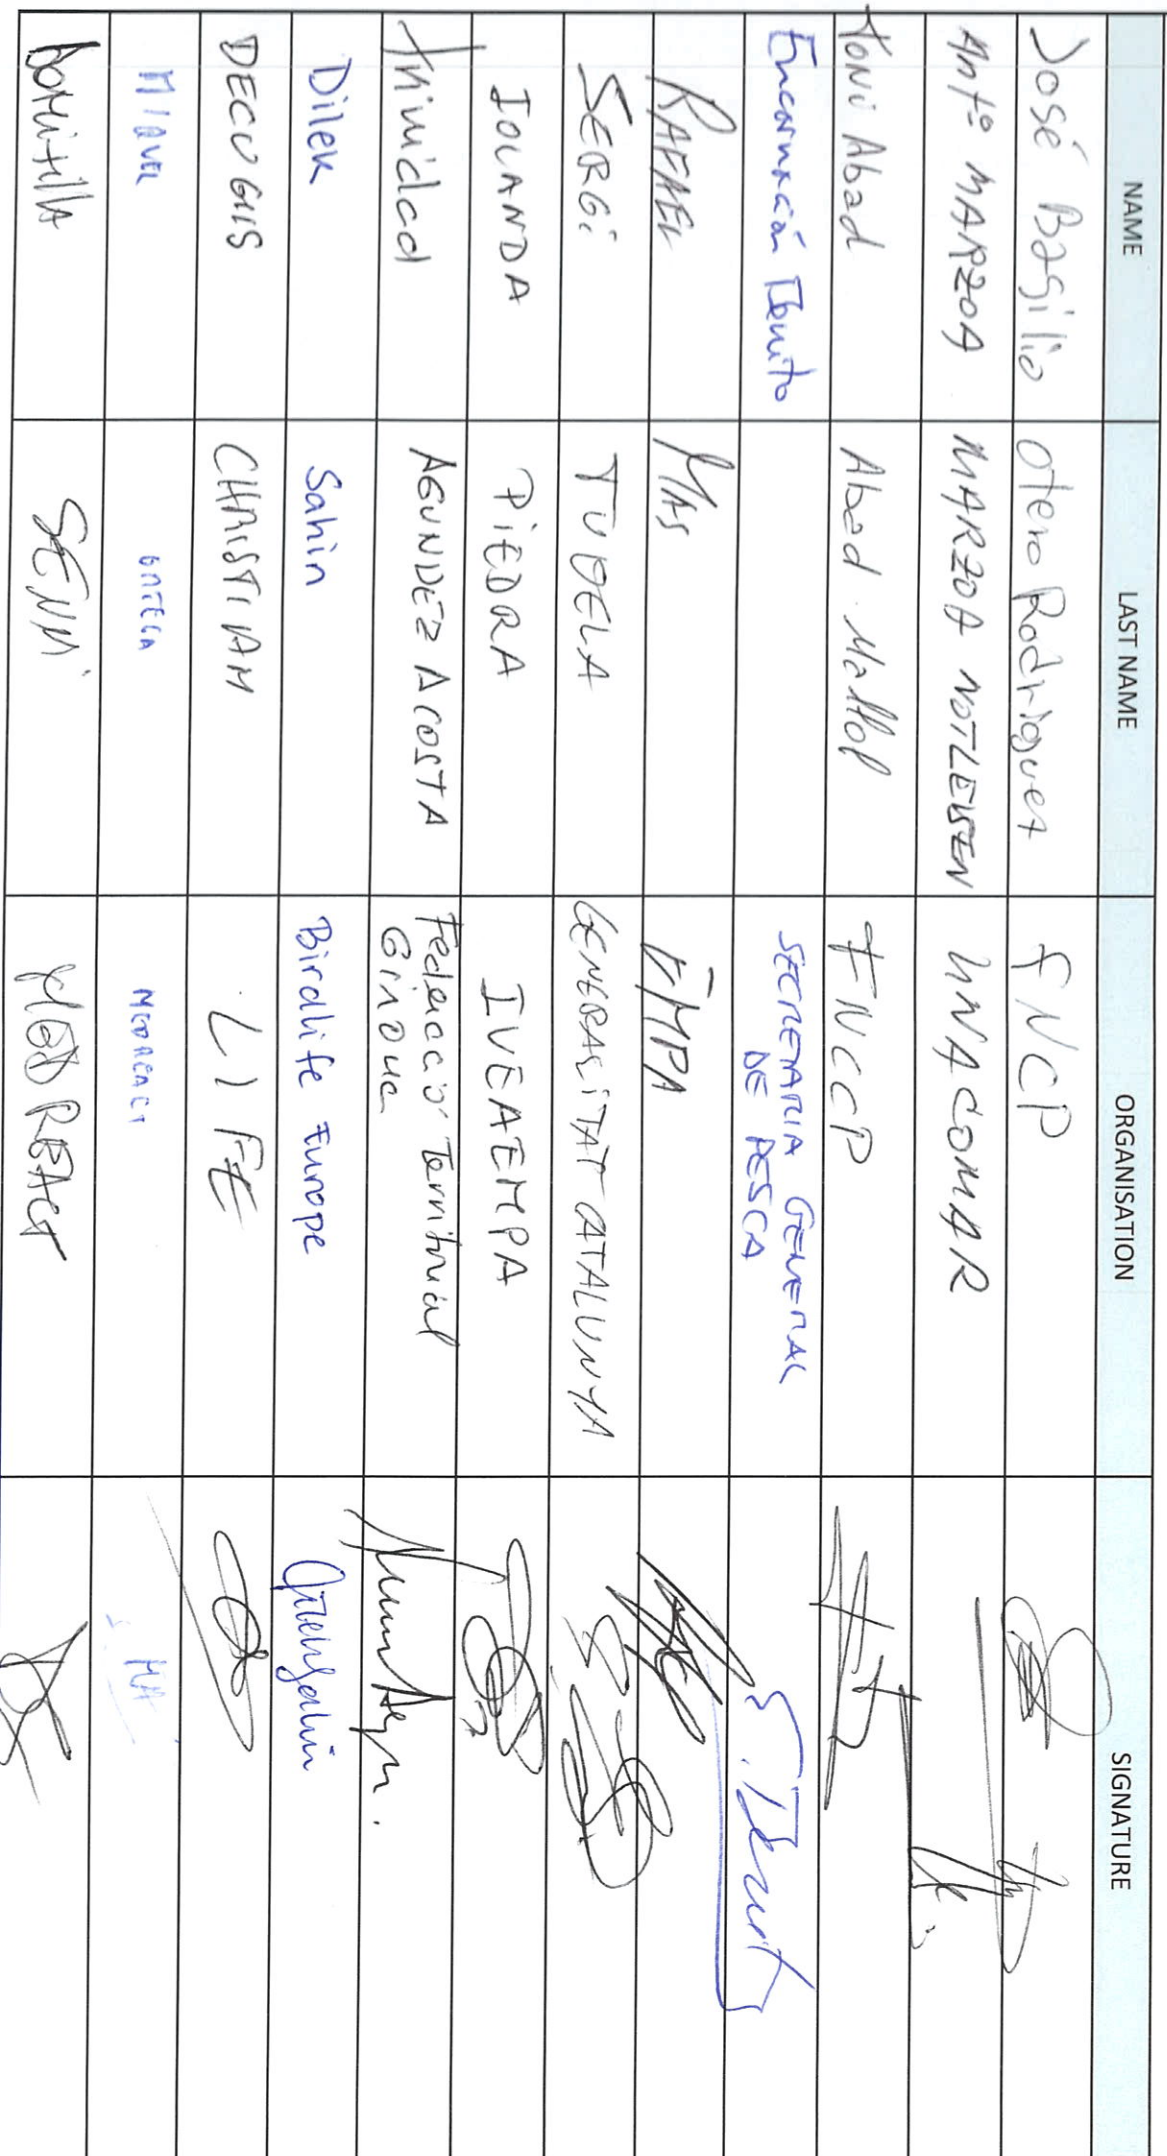 NAME LAST NAME ORGANISATION SIGNATURE
José Basilio Otero Rodriguez FNCP
Antº MARZOA MARZOA NOTLEUSEN UNACOMAR
TONI Abad Abad Mallol FNCCP
Encarnación Benito SECRETARIA GENERAL
DE PESCA E. Benito
RAFAEL MAS EMPA
SERGI TUDELA GENERALITAT CATALUNYA
IOLANDA PIEDRA IVEAEMPA
Trinidad AGUNDEZ ACOSTA Federació Territorial
Girona
Dilek Sahin Birdlife Europe
DECUGIS CHRISTIAN LIFE
MIQUEL ORTEGA MEDREACT
DOMITILLA SENNI MEDREACT